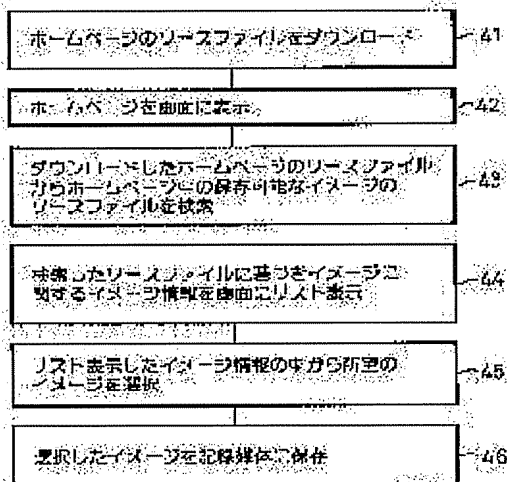 ホームページのソースファイルをダウンロード
41
ホームページを画面に表示
42
ダウンロードしたホームページのソースファイル
からホームページ上の保存可能なイメージの
ソースファイルを検索
43
検索したソースファイルに基づきイメージに
関するイメージ情報を画面にリスト表示
44
リスト表示したイメージ情報の中から所望の
イメージを選択
45
選択したイメージを記録媒体に保存
46